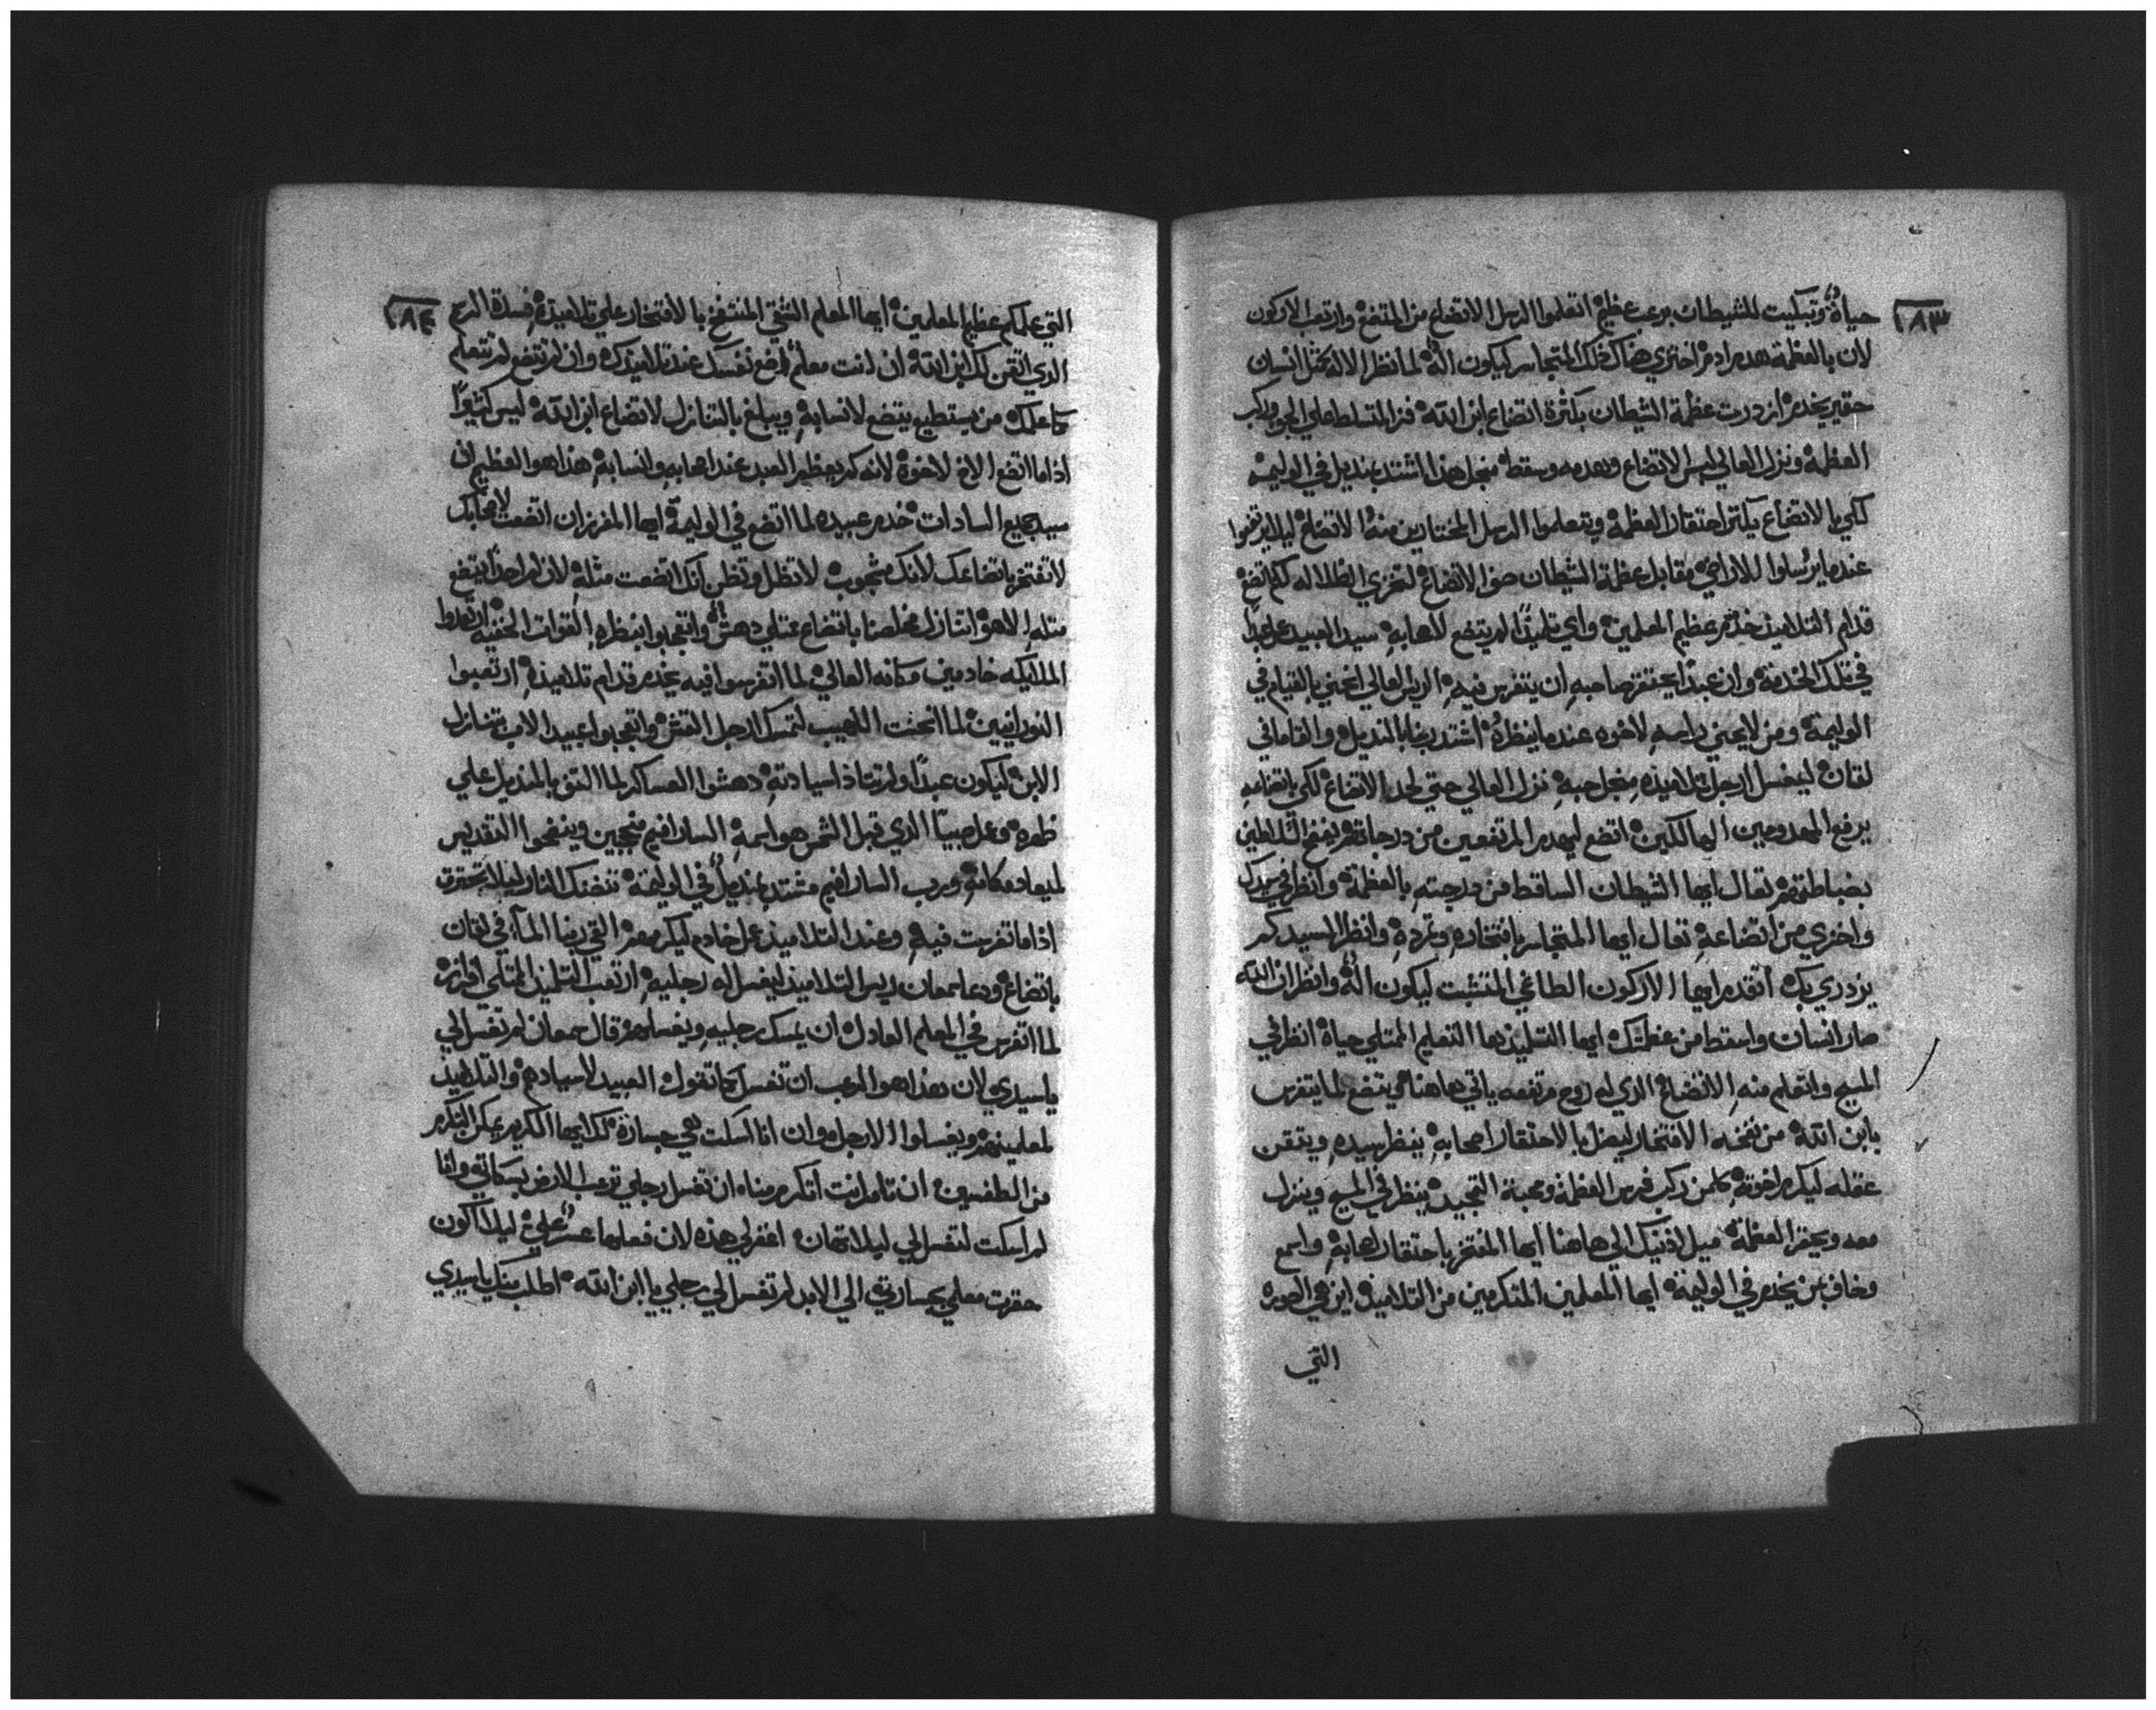 ١٨٣
حياة وتبكيت للشيطان برعب عظيم اتعلموا الرسل الاتضاع من المتضع وارتعب الاركون
لان بالعظمة هدم ادم اختزي هناك ذلك المتجاسر ليكون اله لما نظر الاله كمثل انسان
حقير يخدم ازدرت عظمة الشيطان بكثرة اتضاع ابن الله فنزل المتسلط على الجو وركب
العظمة ونزل العالي لبس الاتضاع وهدمه وسقط من اجل هذا اشتد بمنديل في الوليمة
لكي بالاتضاع يكثر احتقار العظمة ويتعلموا الرسل المختارين منه الاتضاع ليلا يرتفعوا
عندما يرسلوا للاراضي مقابل عظمة الشيطان الاتضاع لتخزي الظلاله كم اتضع
قدام التلاميذ خدم عظيم المعلمين واي تلميذا لم يتضع لاصحابه سيد العبيد عمل عبدا
في تلك الخدمة وان عبدا يحتقر صاحبه ان يتفرس فيه الريس العالي انحني بالقيام في
الوليمة ومن لا يحني راسه لاخوه عندما ينظره اشتد ربنا بالمنديل والقا ما في
لقان ليغسل ارجل تلاميذه من اجل حبه نزل العالي حتي لحد الاتضاع لكي باتضاعه
يرفع المهدومين الهالكين اتضع ليهدم المرتفعين من درجاتهم يفضح الشلاطين
بضباطتهم تعال ايها الشيطان الساقط من درجته بالعظمة وانظر في سيدك
واخزي من اتضاعه تعال ايها المتجاسر بافتخاره وتمرده وانظر السيد كم
يزدري بك اتقدم ايها الاركون الطاغي المتشبت ليكون اله وانظر ان الله
صار انسان واسقط من عظمتك ايها التلميذ ها التعليم الممتلي حياة انظر في
المسيح واتعلم منه الاتضاع الذي له روح مرتفعه ياتي هاهنا كي يتضع لما يتفرس
بابن الله من نفخه الافتخار ليضل بالاحتقار اصحابه ينظر سيده ويتقن
عقله ليكرم اخوته كلمن ركب فرس العظمة ومحبة التمجيد ينظر في المسيح وينزل
معه ويحقر العظمة ميل اذنيك الي هاهنا ايها المفتخر باحتقار اصحابه واسمع
وخاف ممن يخدم في الوليمة ايها المعلمين المتكرمين من التلاميذ اين هي الصورة
التي
١٨٤
التي علمكم عظيم المعلمين ايها المعلم النقي المنتفخ بالافتخار علي تلاميذه
الذي اتقن لك ابن الله ان انت معلم اوضع نفسك عند تلاميذك وان لم تتضع لم تتعلم
كما علمك من يستطيع يتضع لانسابه ويبلغ بالتنازل لاتضاع ابن الله ليس كثيرا
اذا ما اتضع الاخ لاخوة لانه كم يعظم العبد عند اصحابه وانسابه هذا هو العظيم ان
سيد جميع السادات خدم عبيده لما اتضع في الوليمة ايها المفرز ان اتضعت لاصحابك
لا تفتخر باتضاعك لانك مثجوب لا تظل وتظن انك اتضعت مثله لان لم احدا يتضع
مثله الا هو اتنازل مخلصنا باتضاع ممتلي دهش واتعجبوا بنظره القوات الخفيه ارتعدوا
الملايكه خادمين مكانه العالي لما اتفرسوا فيه يخدم قدام تلاميذه ارتعبوا
النورانيين لما انحنت اللهيب لتمسك ارجل القش واتعجبوا عبيد الاب بتنازل
الابن ليكون عبدا ولم تتاذا سيادته دهشوا العساكر لما التف بالمنديل علي
ظهره وعمل صبيا الذي قبل الشمس هو اسمه السارافيم منحجبين وينضحوا التقديس
لميعاد مكانه ورب السارافيم مشتد بمنديل في الوليمة تتضنك النار ليلا تحترق
اذا ما تفرست فيه وعند التلاميذ عمل خادم ليكرمهم القي ربنا الماء في لقان
باتضاع ودعا سمعان ريس التلاميذ ليغسل له رجليه ارتعب التلميذ الممتلي افرازه
لما اتفرس في المعلم العادل ان يمسك رجليه ويغسلهم قال سمعان لم تغسل لي
يا سيدي لان هذا هو المرعب ان تغسل كما تقول العبيد لاسيادهم والتلاميذ
لمعلمينهم ويغسلوا الارجل وان انا اسكت هي جسارة لك ايها الكريم يمكن التكرم
من الطغسين ان تامر انت اتكرم مناه ان تغسل رجلي ترعب الارض بسكاني وانا
لم اسكت لتغسل لي ليلا تتهان اغفر لي هذه لان فعلها عسر علي ليلا اكون
حقرت معلمي بجسارتي الي الابد لم تغسل لي رجلي يا ابن الله اطلب منك يا سيدي